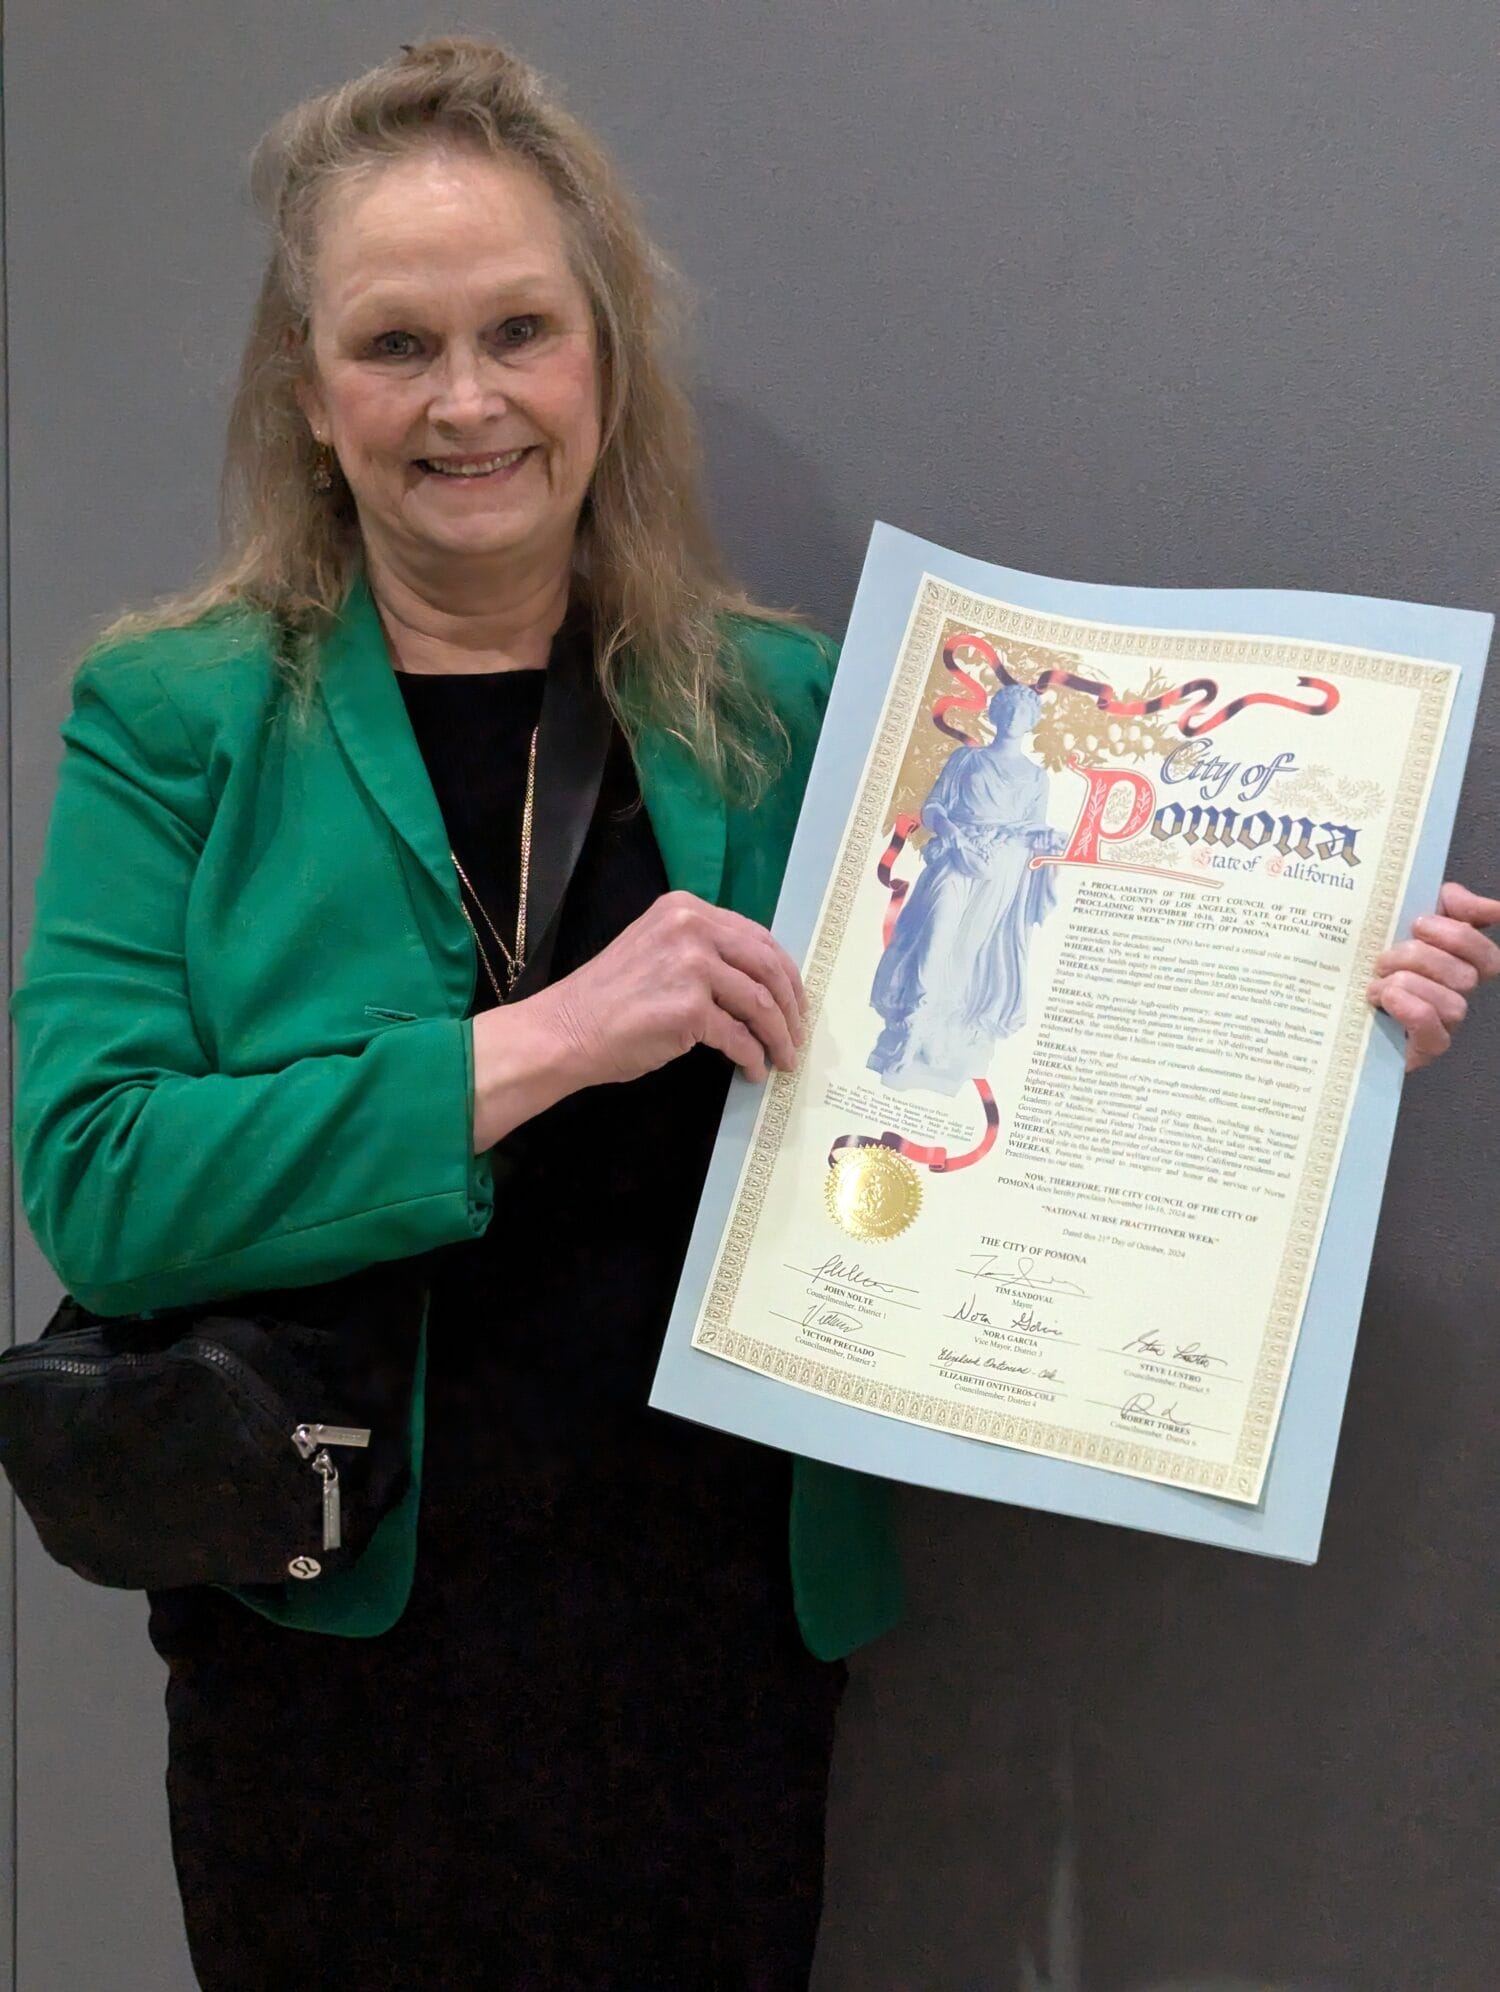 City of
Pomona
State of California
A PROCLAMATION OF THE CITY COUNCIL OF THE CITY OF
POMONA, COUNTY OF LOS ANGELES, STATE OF CALIFORNIA,
PROCLAIMING NOVEMBER 10-16, 2024 AS "NATIONAL NURSE
PRACTITIONER WEEK" IN THE CITY OF POMONA
WHEREAS, nurse practitioners (NPs) have served a critical role as trusted health
care providers for decades; and
WHEREAS, NPs work to expand health care access in communities across our
state, promote health equity in care and improve health outcomes for all; and
WHEREAS, patients depend on the more than 385,000 licensed NPs in the United
States to diagnose, manage and treat their chronic and acute health conditions;
and
WHEREAS, NPs provide high-quality primary, acute and specialty health care
services while emphasizing health promotion, disease prevention, health education
and counseling, partnering with patients to improve their health; and
WHEREAS, the confidence that patients have in NP-delivered health care is
evidenced by the more than 1 billion visits made annually to NPs across the country;
and
WHEREAS, more than five decades of research demonstrates the high quality of
care provided by NPs; and
WHEREAS, better utilization of NPs through modernized state laws and improved
policies creates better health through a more accessible, efficient, cost-effective and
higher-quality health care system; and
WHEREAS, leading governmental and policy entities, including the National
Academy of Medicine, National Council of State Boards of Nursing, National
Governors Association and Federal Trade Commission, have taken notice of the
benefits of providing patients full and direct access to NP-delivered care; and
WHEREAS, NPs serve as the provider of choice for many California residents and
play a pivotal role in the health and welfare of our communities; and
WHEREAS, Pomona is proud to recognize and honor the service of Nurse
Practitioners to our state.
NOW, THEREFORE, THE CITY COUNCIL OF THE CITY OF
POMONA does hereby proclaim November 10-16, 2024 as:
"NATIONAL NURSE PRACTITIONER WEEK"
Dated this 21st Day of October, 2024
THE CITY OF POMONA
TIM SANDOVAL
Mayor
JOHN NOLTE
Councilmember, District 1
NORA GARCIA
Vice Mayor, District 3
STEVE LUSTRO
Councilmember, District 5
VICTOR PRECIADO
Councilmember, District 2
ELIZABETH ONTIVEROS-COLE
Councilmember, District 4
ROBERT TORRES
Councilmember, District 6